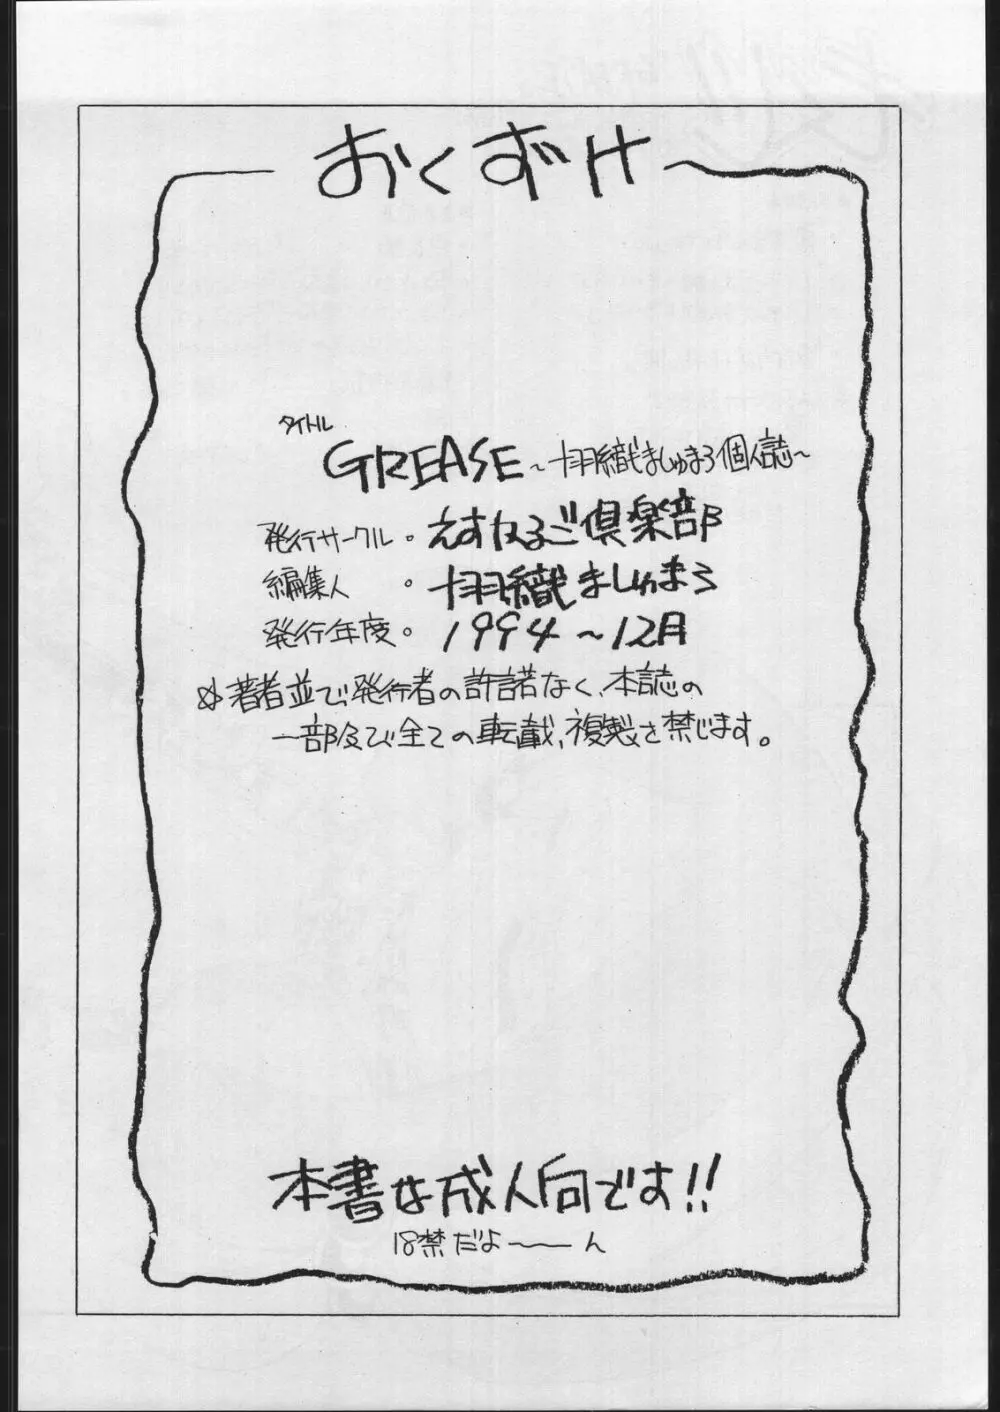 おくずけ
タイトル
GREASE～羽織ましゅまろ個人誌～
発行サークル。えすけるご倶楽部
編集人 。羽織ましゅまろ
発行年度。1994～12月
☆著者並び発行者の許諾なく、本誌の
一部及び全ての転載、複製を禁じます。
本書は成人向です!!
18禁だよ～ん